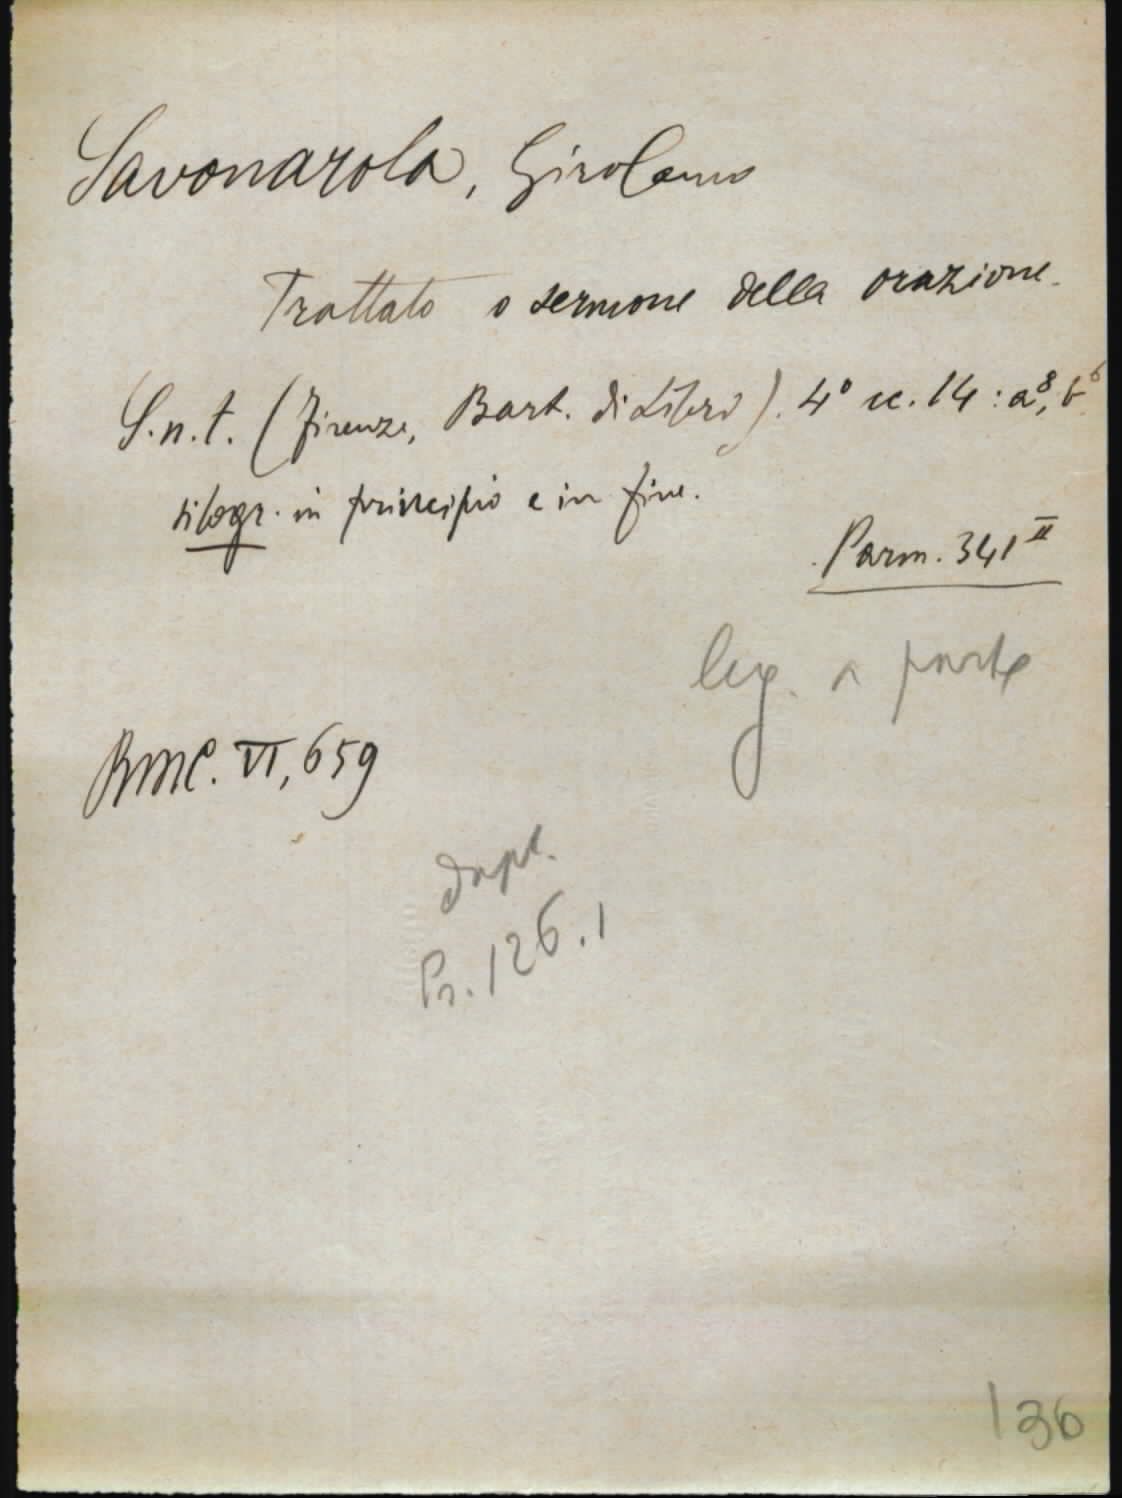 Savonarola, Girolamo
Trattato o sermone della orazione.
S.n.t. (Firenze, Bart. di Libri). 4° cc. 14: a⁸, b⁶
silogr. in principio e in fine.
Parm. 341 II
leg. a parte
BMC. VI, 659
dupl.
Pr. 126.1
136